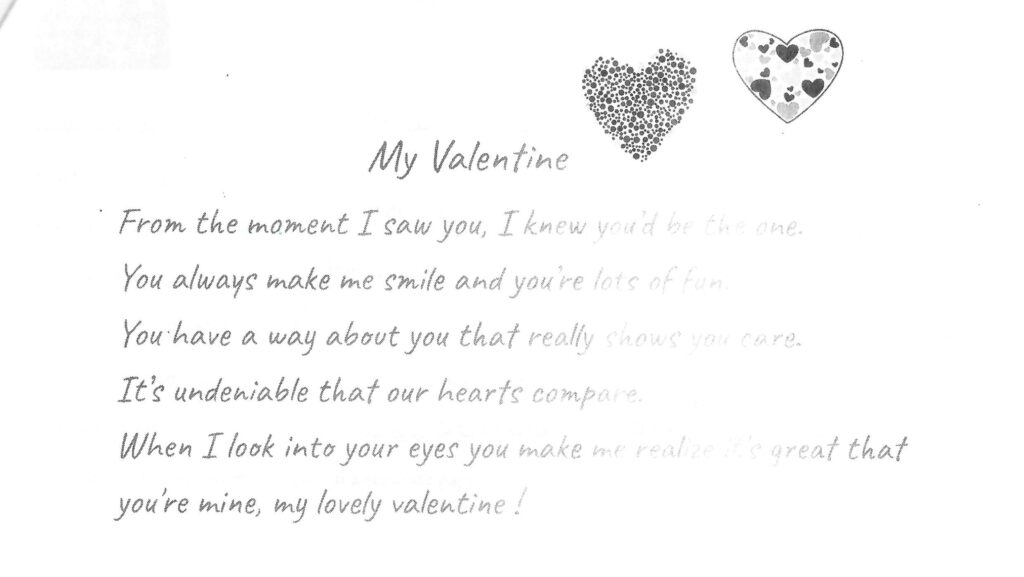 My Valentine
From the moment I saw you, I knew you'd be the one.
You always make me smile and you're lots of fun.
You have a way about you that really shows you care.
It's undeniable that our hearts compare.
When I look into your eyes you make me realize it's great that
you're mine, my lovely valentine!